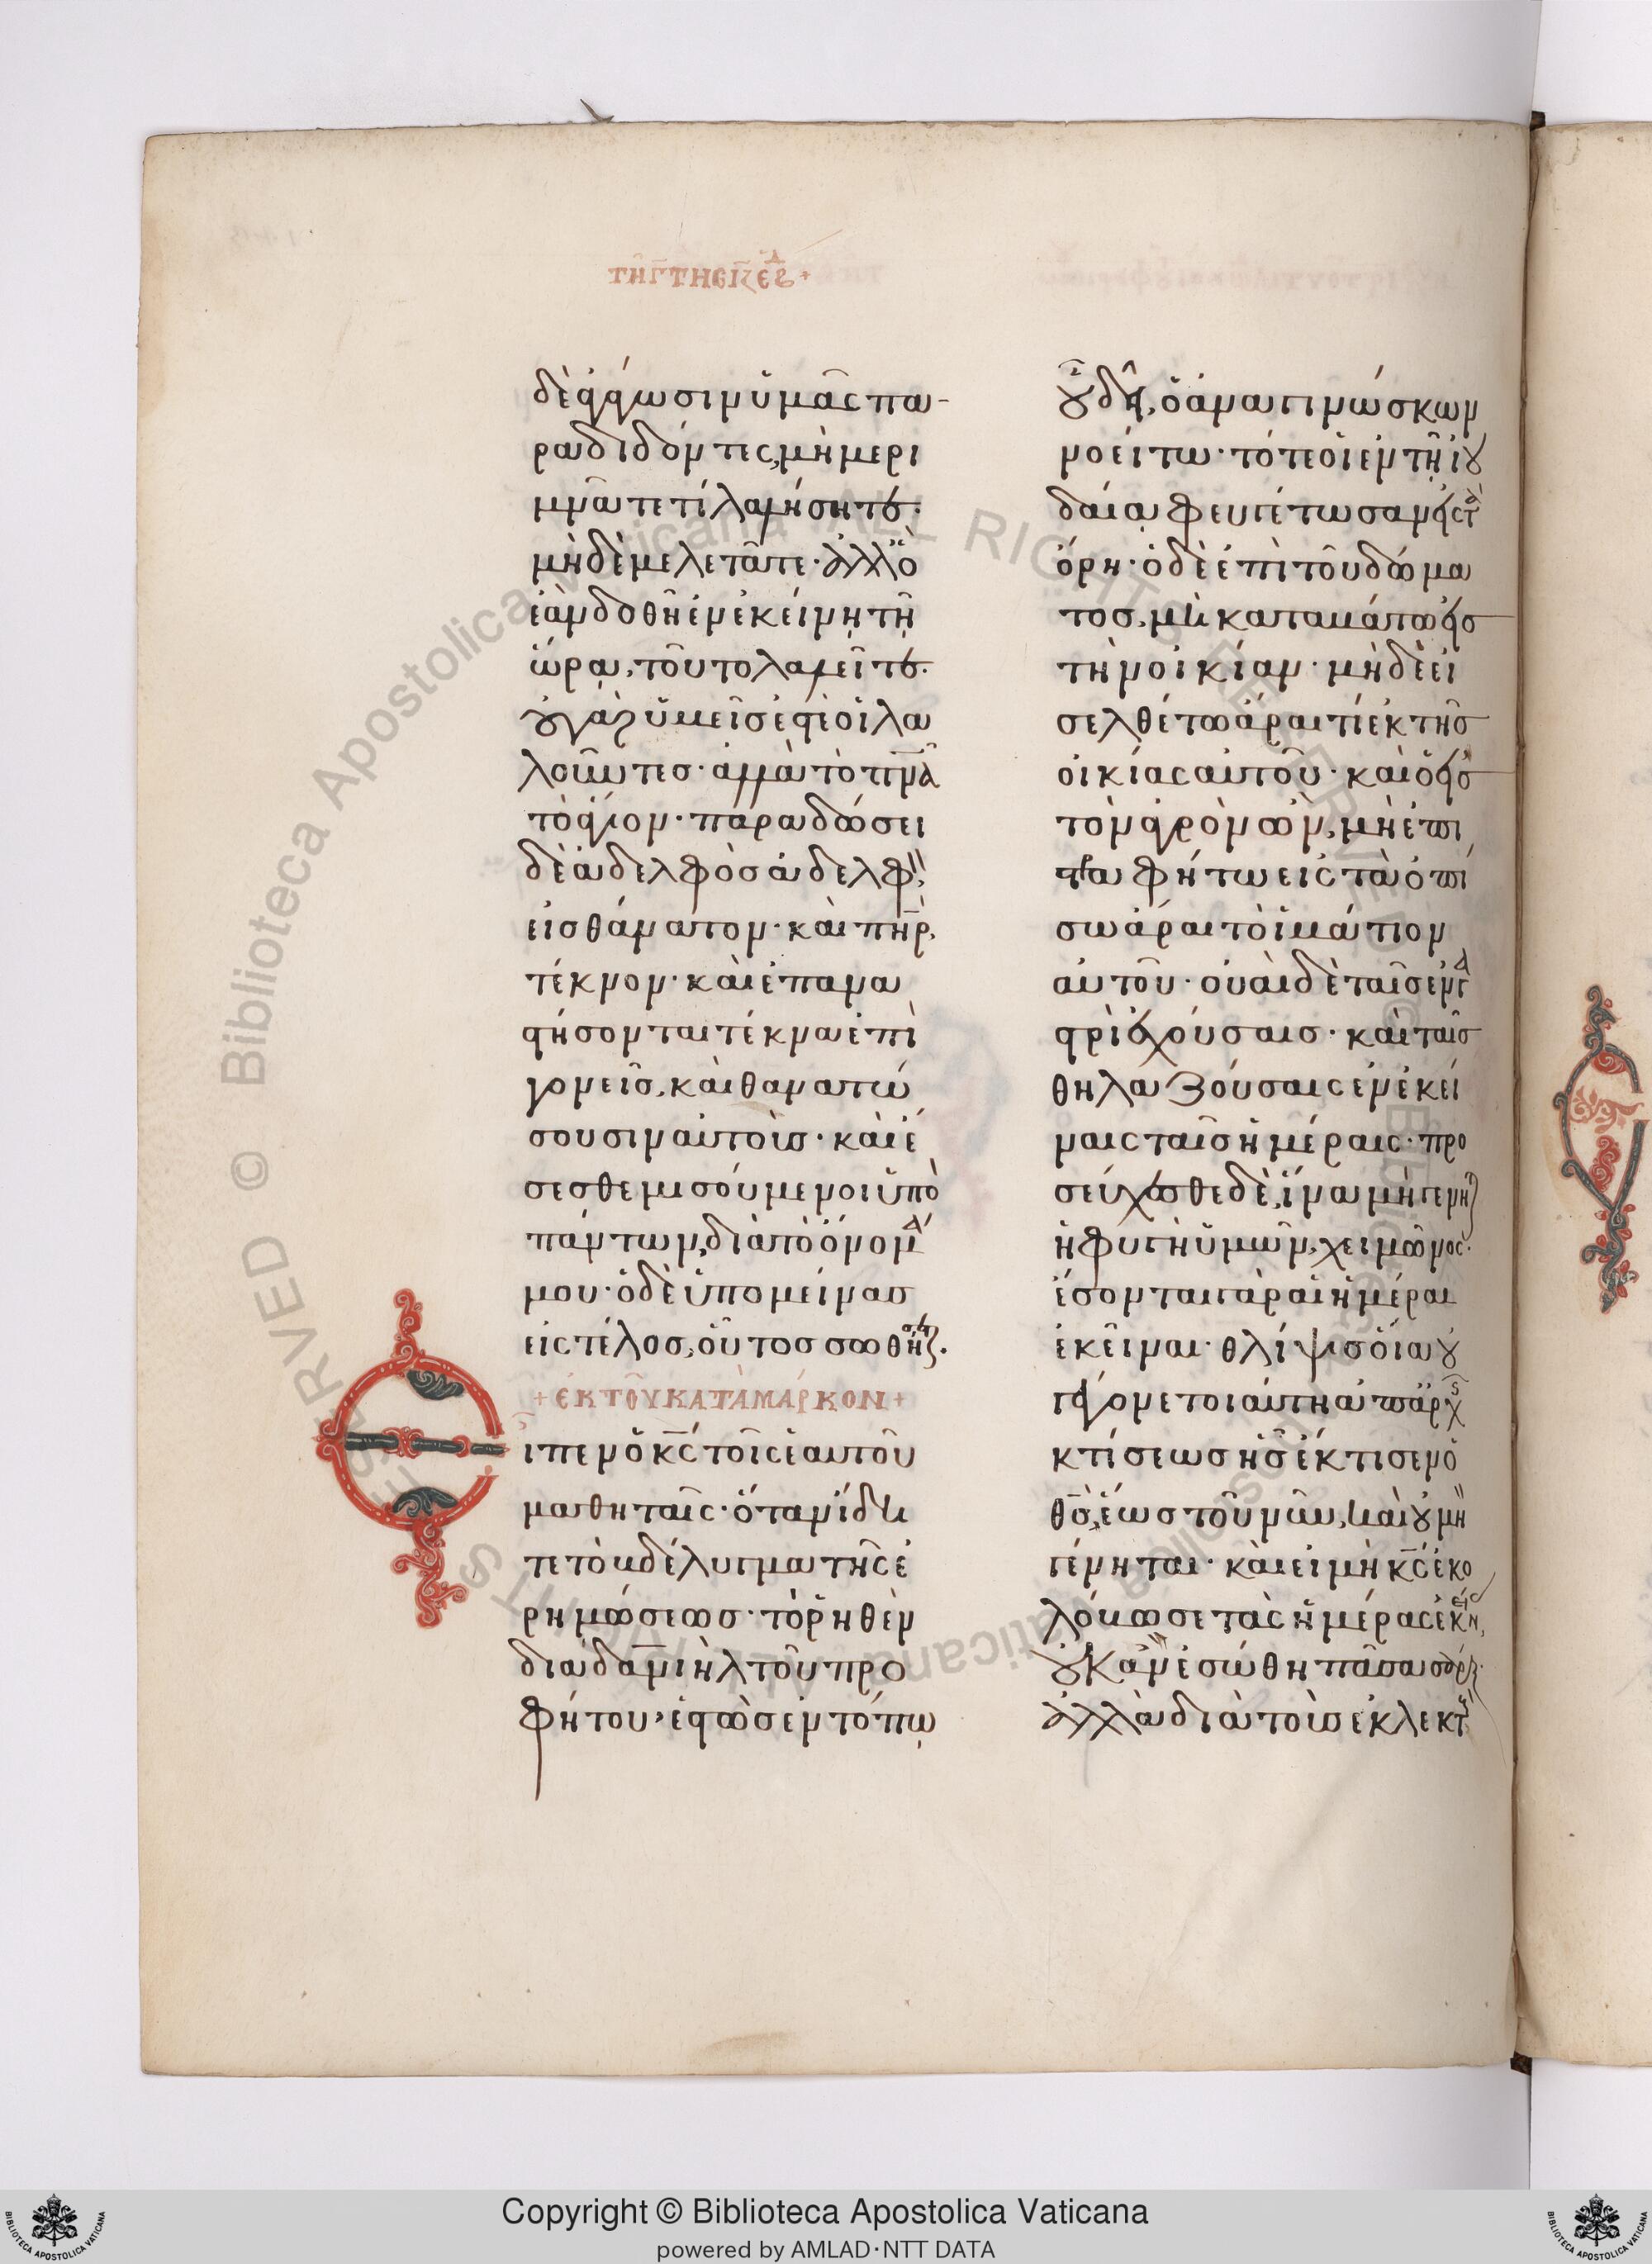 τῆ γ̄ τῆς ιζ ἑβδ +
δὲ ἄγωσιν ὑμᾶς πα-
ραδιδόντες, μὴ μερι
μνᾶτε τί λαλήσητε·
μηδὲ μελετᾶτε· ἀλλ' ὃ
ἐὰν δοθῆ ἐν ἐκείνη τῆ
ὥρα, τοῦτο λαλεῖτε·
οὐ γὰρ ὑμεῖς ἐστὲ οἱ λα
λοῦντες· ἀλλὰ τὸ πνᾶ
τὸ ἅγιον· παραδώσει
δὲ ἀδελφὸς ἀδελφὸν
εἰς θάνατον· καὶ πηρ,
τέκνον· καὶ ἐπανα
στήσονται τέκνα ἐπὶ
γονεῖς, καὶ θανατώ
σουσιν αὐτούς· καὶ ἔ
σεσθε μισούμενοι ὑπὸ
πάντων, διὰ τὸ ὄνομά
μου· ὁ δὲ ὑπομείνας
εἰς τέλος, οὗτος σωθήσεται.
+ ἐκ τοῦ κατὰ μάρκον +
Εἶπεν ὁ κς τοῖς ἑαυτοῦ
μαθηταῖς· ὅταν ἴδη
τε τὸ βδέλυγμα τῆς ἐ
ρημώσεως· τὸ ῥηθὲν
διὰ δανιὴλ τοῦ προ
φήτου, ἑστὼς ἐν τόπω
οὐ δεῖ, ὁ ἀναγινώσκων
νοείτω· τότε οἱ ἐν τῆ ἰου
δαία φευγέτωσαν εἰς τὰ
ὄρη· ὁ δὲ ἐπὶ τοῦ δώμα
τος, μὴ καταβάτω εἰς
τὴν οἰκίαν· μηδὲ εἰ
σελθέτω ἆραί τι ἐκ τῆς
οἰκίας αὐτοῦ· καὶ ὁ εἰς
τὸν ἀγρὸν ὢν, μὴ ἐπι
στραφήτω εἰς τὰ ὀπί
σω ἆραι τὸ ἱμάτιον
αὐτοῦ· οὐαὶ δὲ ταῖς ἐν γα
στρὶ ἐχούσαις· καὶ ταῖς
θηλαζούσαις ἐν ἐκεί
ναις ταῖς ἡμέραις· προ
σεύχεσθε δὲ, ἵνα μὴ γένηται
ἡ φυγὴ ὑμῶν, χειμῶνος·
ἔσονται γὰρ αἱ ἡμέραι
ἐκεῖναι· θλίψις οἵα οὐ
γέγονε τοιαύτη ἀπ' ἀρχῆς
κτίσεως ἧς ἔκτισεν ὁ
θς, ἕως τοῦ νῦν, καὶ οὐ μὴ
γένηται· καὶ εἰ μὴ κς ἐκο
λόβωσε τὰς ἡμέρας ἐκείνας,
οὐκ ἂν ἐσώθη πᾶσα σάρξ·
ἀλλὰ διὰ τοὺς ἐκλεκτοὺς
Copyright © Biblioteca Apostolica Vaticana
powered by AMLAD·NTT DATA